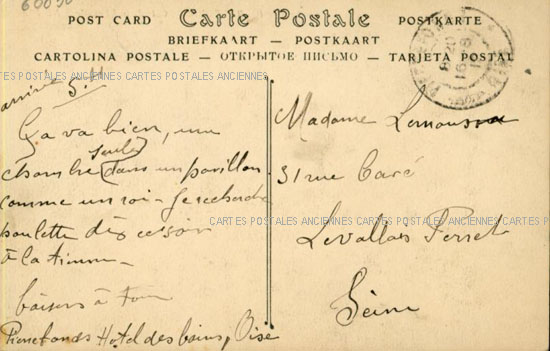 60090
POST CARD Carte Postale POSTKARTE
BRIEFKAART — POSTKAART
CARTOLINA POSTALE — ОТКРЫТОЕ ПИСЬМО — TARJETA POSTAL
CARTES POSTALES ANCIENNES CARTES POSTALES ANCIENNES
arrivé 5.H
Ça va bien, une
seule
chambre dans un pavillon
comme un roi - Je recherche
poulette dès ce soir
à la tienne -
baisers à tous
Pierrefonds Hotel des bains, Oise
Madame Lemoussu
31 rue Cavé
CARTES POSTALES ANCIENNES CARTES POSTALES ANCIENNES CARTES POSTALES
Levallois Perret
Seine